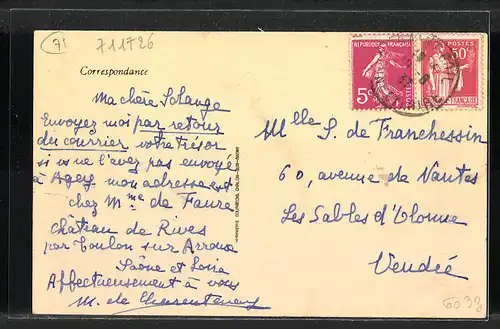 71
711726
Correspondance
REPUBLIQUE FRANÇAISE
5c
POSTES
50c
POSTES
FRANÇAISE
Ma chère Solange
Envoyez moi par retour
du courrier votre trésor
si vs ne l'avez pas envoyé
à Agey mon adresse est
chez Mme de Faure
château de Rives
par Toulon sur Arroux
Saône et Loire
Affectueusement à vous
M. de Charentenay
Mlle S. de Franchessin
60, avenue de Nantes
Les Sables d'Olonne
Vendée